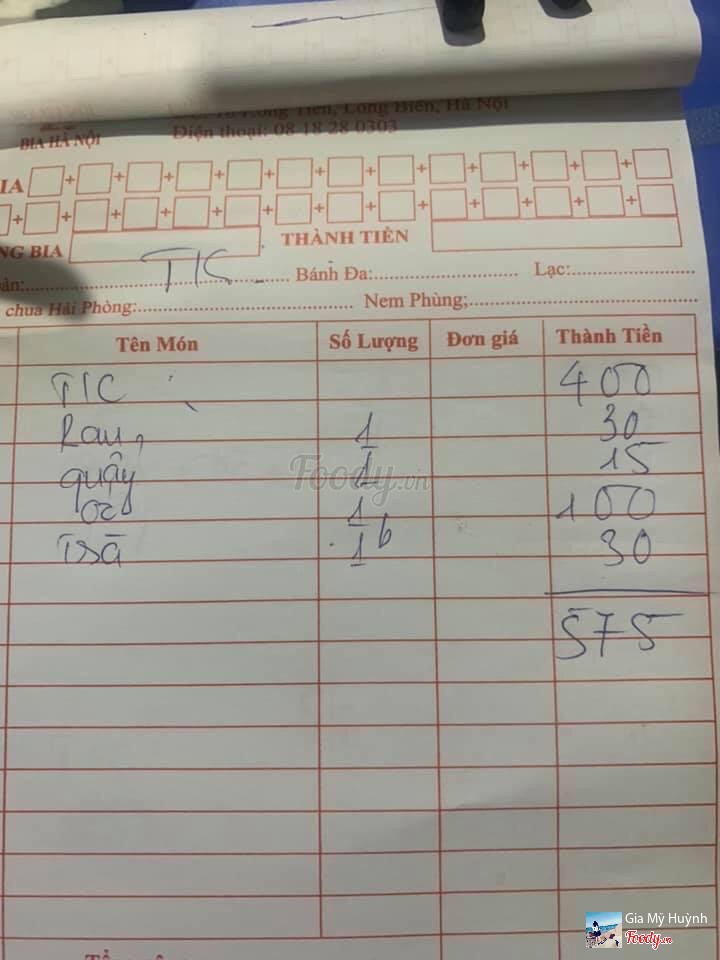 BIA HÀ NỘI
Tiên, Long Biên, Hà Nội
Điện thoại: 08 18 28 0303
IA + + + + + + + + + + + +
+ + + + + + + + + + + + +
NG BIA THÀNH TIỀN
TIC Bánh Đa: Lạc:
chua Hải Phòng: Nem Phùng;
Tên Món Số Lượng Đơn giá Thành Tiền
TIC 400
Rau 1 30
quẩy 1 15
ốc 1 100
Trà 1b 30
575
Foody.vn
Gia Mỹ Huỳnh
Foody.vn